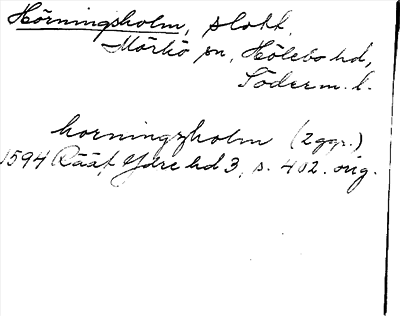 Hörningsholm, slott.
Mörkö sn, Hölebo hd,
Söderm. l.
horningzholm (2 ggr.)
1594 Rääf Ydre hd 3, s. 402. orig.